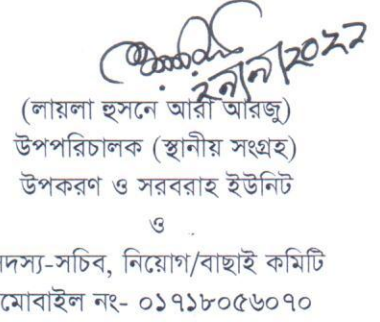 (লায়লা হুসনে আরা আরজু)
উপপরিচালক (স্থানীয় সংগ্রহ)
উপকরণ ও সরবরাহ ইউনিট
ও
সদস্য-সচিব, নিয়োগ/বাছাই কমিটি
মোবাইল নং- ০১৭১৮০৫৬০৭০